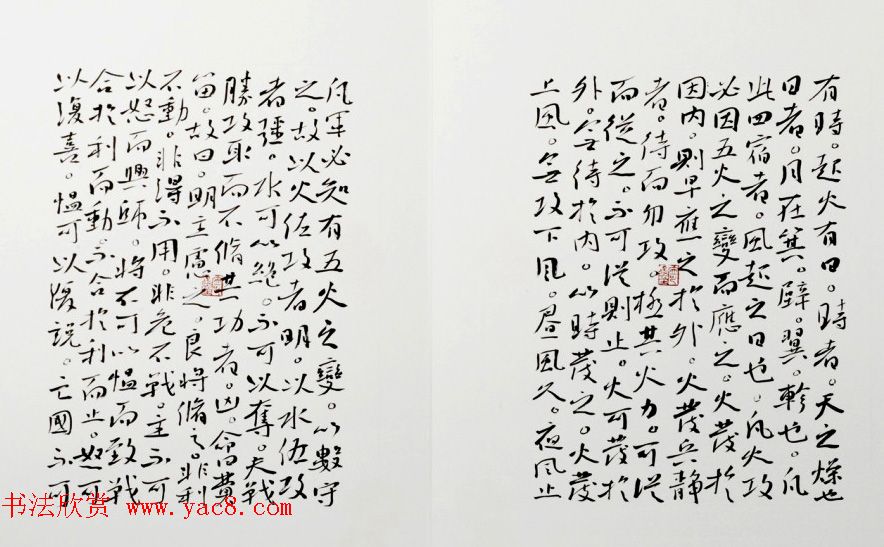 有時。起火有日。時者。天之燥也
日者。月在箕。壁。翼。軫也。凡
此四宿者。風起之日也。凡火攻
必因五火之變而應之。火發於
因内。則早應之於外。火發兵靜
者。待而勿攻。極其火力。可從
而從之。不可從則止。火可發於
外。無待於内。以時發之。火發
上風。無攻下風。晝風久。夜風止
凡軍必知有五火之變。以數守
之。故以火佐攻者明。以水佐攻
者彊。水可以絕。不可以奪。夫戰
勝攻取而不脩其功者。凶。命曰費
留。故曰。明主慮之。良將脩之。非利
不動。非得不用。非危不戰。主不可
以怒而興師。將不可以慍而致戰
合於利而動。不合於利而止。怒可
以復喜。慍可以復説。亡國不可
书法欣赏 www.yac8.com